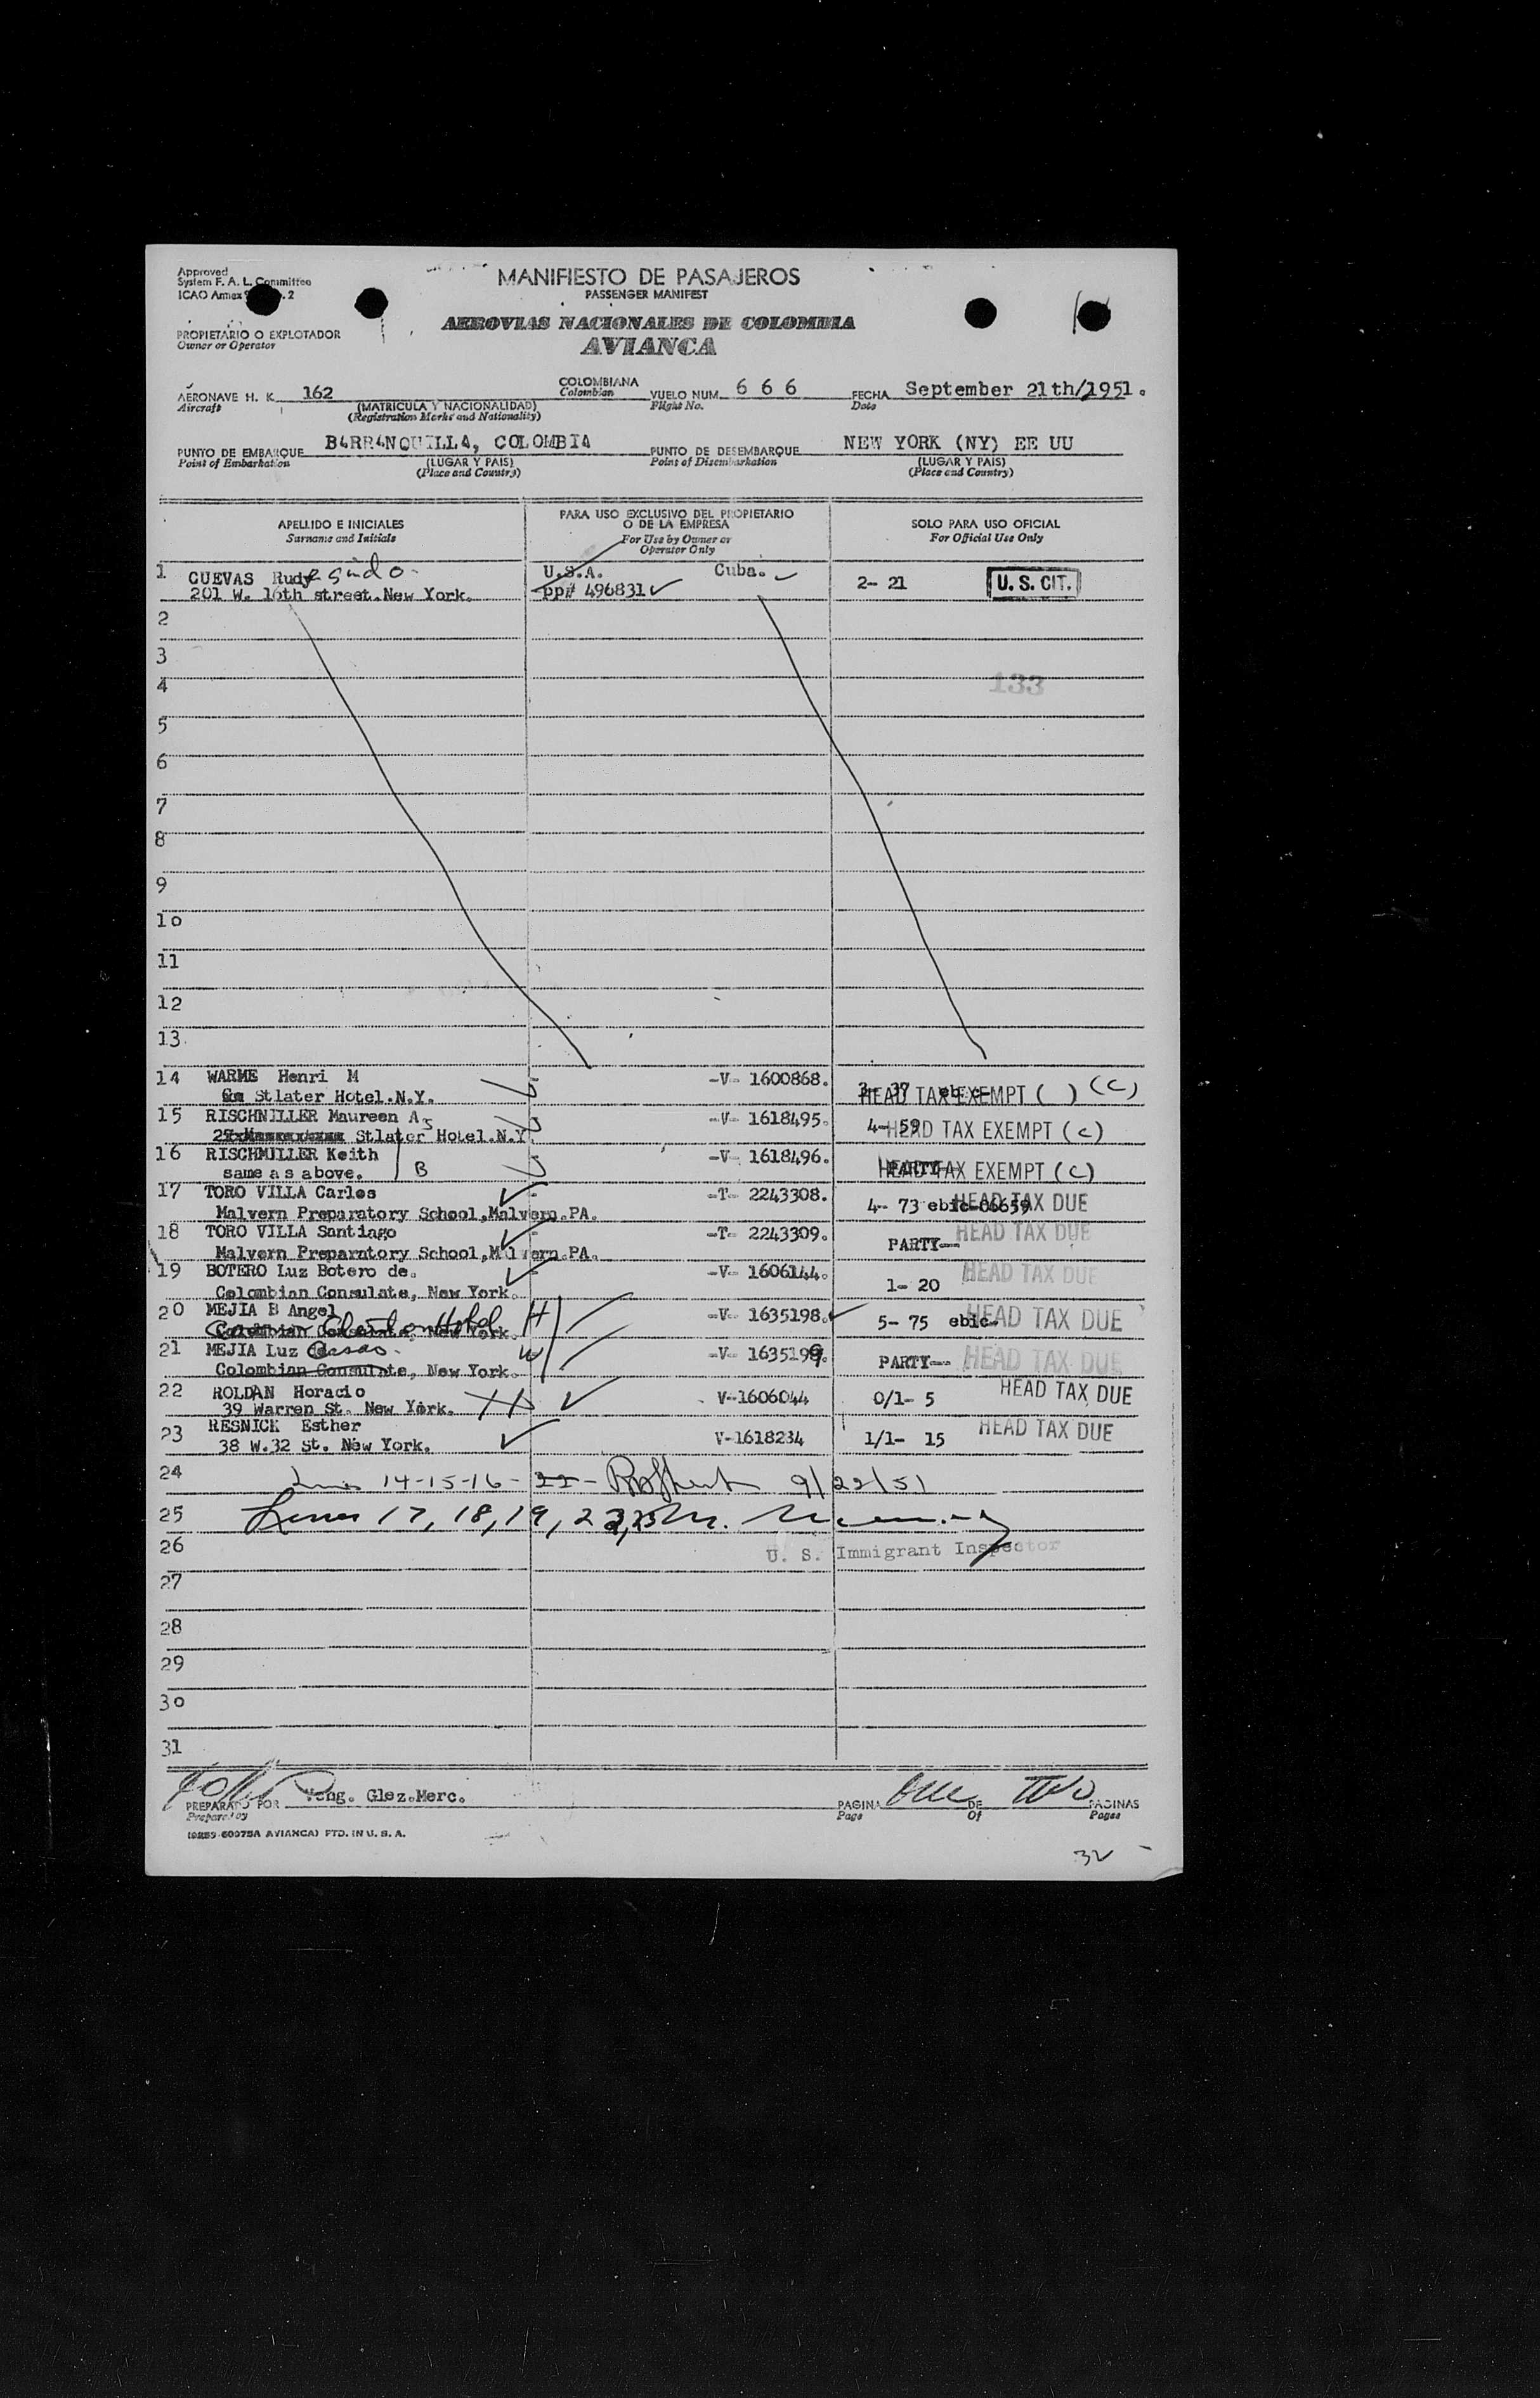 Approved
System F. A. L. Committee
ICAO Annex 9 . 2
MANIFIESTO DE PASAJEROS
PASSENGER MANIFEST
PROPIETARIO O EXPLOTADOR
Owner or Operator
AEROVIAS NACIONALES DE COLOMBIA
AVIANCA
AERONAVE H. K. 162 COLOMBIANA VUELO NUM. 6 6 6 FECHA September 21th/1951.
Aircraft Colombian Flight No. Date
(MATRICULA Y NACIONALIDAD)
(Registration Marks and Nationality)
PUNTO DE EMBARQUE BARRANQUILLA, COLOMBIA PUNTO DE DESEMBARQUE NEW YORK (NY) EE UU
Point of Embarkation (LUGAR Y PAIS) Point of Disembarkation (LUGAR Y PAIS)
(Place and Country) (Place and Country)
APELLIDO E INICIALES PARA USO EXCLUSIVO DEL PROPIETARIO O DE LA EMPRESA SOLO PARA USO OFICIAL
Surname and Initials For Use by Owner or Operator Only For Official Use Only
1 CUEVAS Rudesindo U.S.A. Cuba. 2- 21 U. S. CIT.
201 W. 16th street.New York. pp# 496831
2
3
4 133
5
6
7
8
9
10
11
12
13
14 WARME Henri M -V- 1600868. 3- 37 HEAD TAX EXEMPT ( ) (C)
Stlater Hotel.N.Y.
15 RISCHNILLER Maureen A S -V- 1618495. 4- 59 HEAD TAX EXEMPT (C)
Stlater Hotel.N.Y.
16 RISCHMILLER Keith -V- 1618496. PARTY HEAD TAX EXEMPT (C)
same as above. B
17 TORO VILLA Carlos -T- 2243308. 4- 73 ebic-06659 HEAD TAX DUE
Malvern Preparatory School,Malvern.PA.
18 TORO VILLA Santiago -T- 2243309. PARTY-- HEAD TAX DUE
Malvern Preparatory School,Malvern.PA.
19 BOTERO Luz Botero de. -V- 1606144. 1- 20 HEAD TAX DUE
Colombian Consulate, New York.
20 MEJIA B Angel H -V- 1635198. 5- 75 ebic- HEAD TAX DUE
Colombian Consulate, New York. Hotel
21 MEJIA Luz W -V- 1635199. PARTY-- HEAD TAX DUE
Colombian Consulate, New York.
22 ROLDAN Horacio V-1606044 0/1- 5 HEAD TAX DUE
39 Warren St. New York.
23 RESNICK Esther V-1618234 1/1- 15 HEAD TAX DUE
38 W.32 St. New York.
24 Lines 14-15-16- 22- 9/22/51
25 Lines 17, 18, 19,
26 U. S. Immigrant Inspector
27
28
29
30
31
PREPARADO POR Yeng. Glez.Merc. PAGINA One DE Two PAGINAS
Prepared by Page Of Pages
(0259-60975A AVIANCA) PTD. IN U. S. A.
32